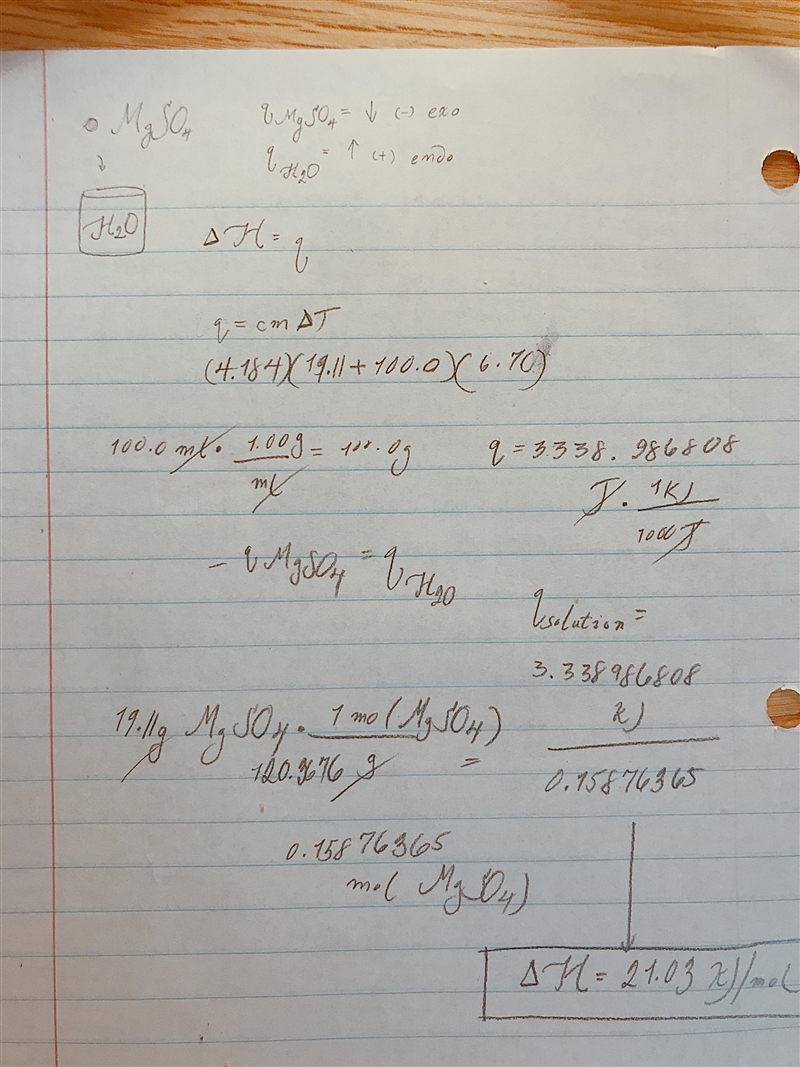 MgSO₄
q MgSO₄ = ↓ (-) exo
q H₂O = ↑ (+) endo
H₂O
ΔH = q
q = cmΔT
(4.184)(19.11 + 100.0)(6.70)
100.0 mL · 1.00g / mL = 100.0g
q = 3338.986808
J · 1KJ / 1000J
- q MgSO₄ = q H₂O
q solution =
3.338986808
KJ
0.15876365
19.11g MgSO₄ · 1 mol (MgSO₄) / 120.3676 g =
0.15876365
mol (MgSO₄)
ΔH = 21.03 KJ/mol